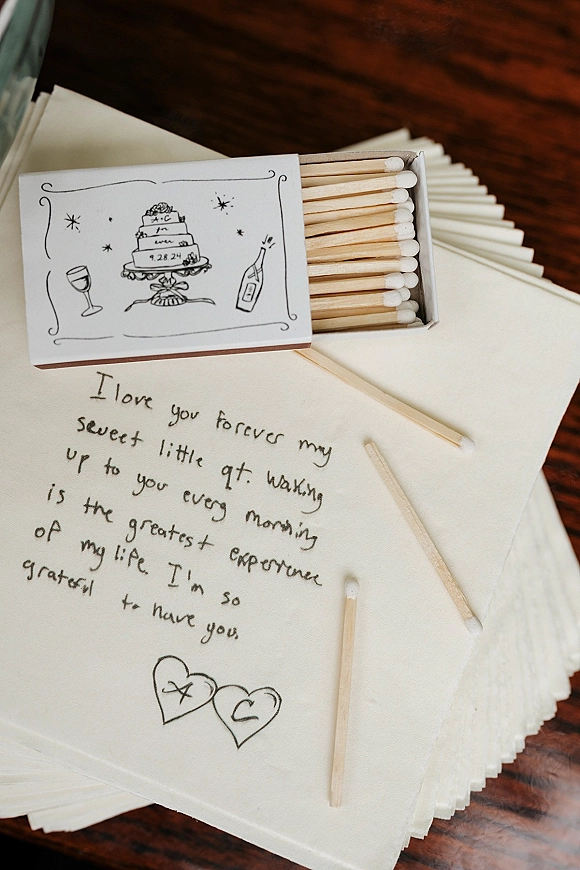 A + C
for
ever
9.28.24
I love you forever my
sweet little qt. Waking
up to you every morning
is the greatest experience
of my life. I'm so
grateful to have you.
A C